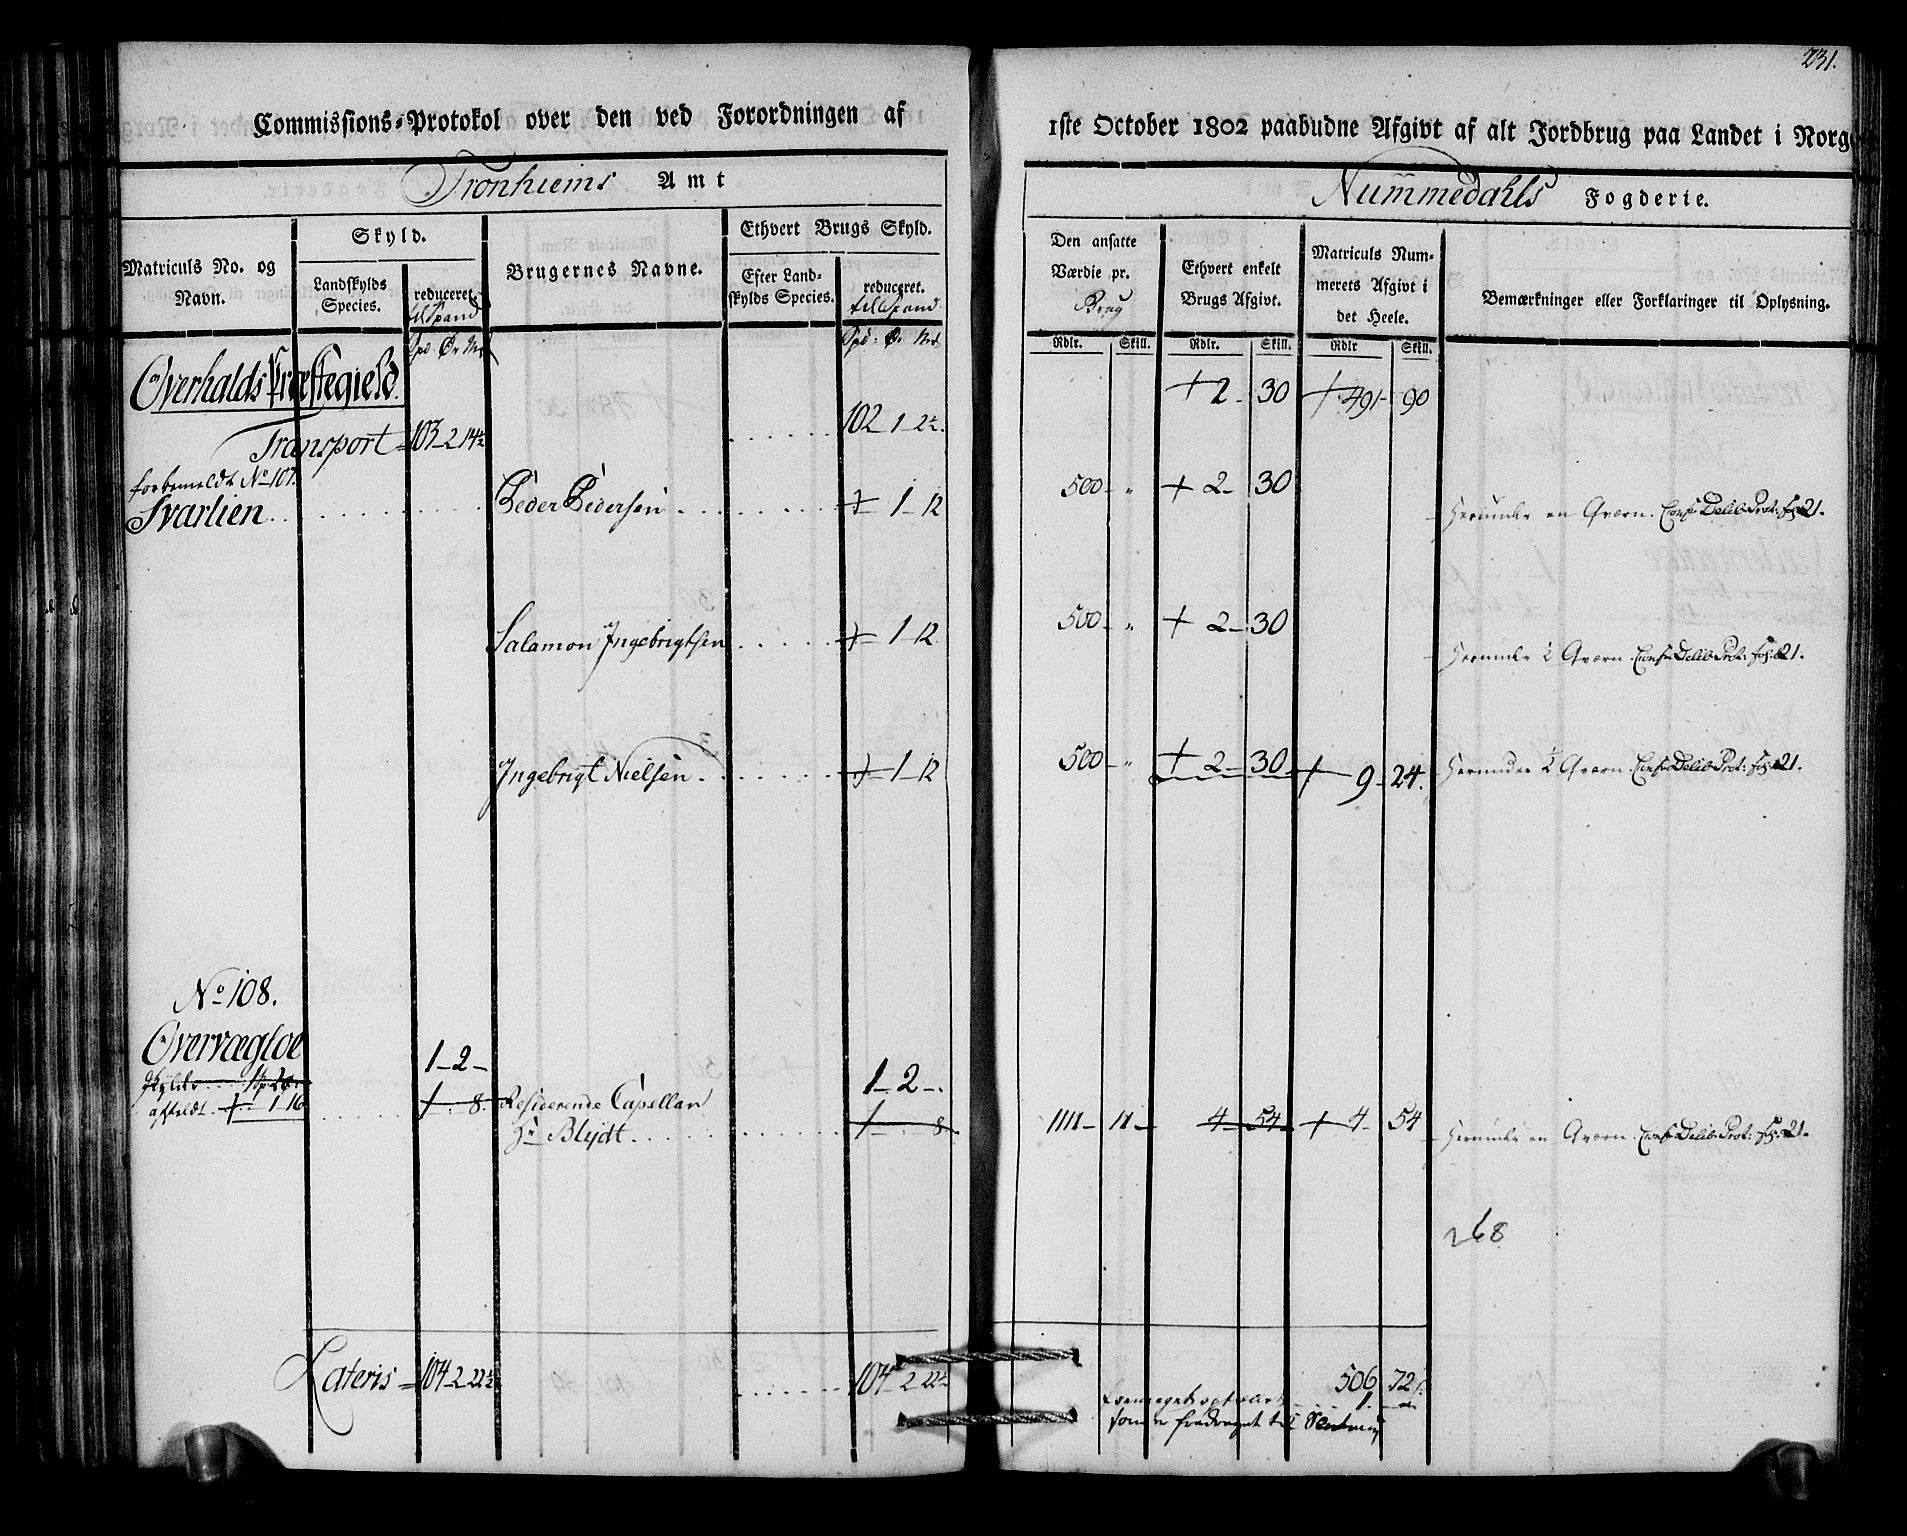 231.
Commissions-Protokol over den ved Forordningen af
1ste October 1802 paabudne Afgivt af alt Jordbrug paa Landet i Norge
Tronhiems Amt
Nummedahls Fogderie.
Matriculs No. og Navn.
Skyld.
Landskylds Species.
reduceret
til Spand
Spd. Ör Mk
Brugernes Navne.
Ethvert Brugs Skyld.
Efter Landskylds Species.
reduceret.
til Spand
Spd. Ö. Mk
Den ansatte Værdie pr.
Brug
Rdlr. Skill.
Ethvert enkelt Brugs Afgivt.
Rdlr. Skill.
Matriculs Nummerets Afgivt i det Heele.
Rdlr Skill.
Bemærkninger eller Forklaringer til Oplysning.
Overhalds Præstegield.
+ 2 - 30 + 491 - 90
Transport 103 - 2 14½ 102 - 1 - 2½.
forbemeldt No 107.
Svarlien Peder Pedersen + 1 - 12 500 - " + 2 - 30 Herunder en Qværn. Conf: Delib. Prot: fol: 21.
Salamon Ingebrigtsen + 1 - 12 500 - " + 2 - 30 Herunder ½ Qværn. Conf: Delib. Prot: fol: 21.
Ingebrigt Nielsen + 1 - 12 500 - " + 2 - 30 + 9 - 24. Herunder ½ Qværn. Conf: Delib. Prot: fol: 21.
No 108.
Overvægloe 1 - 2 - 1 - 2 -
skylder 1 Sp 2 ør
aftældt + 1 - 16 + 8. Residerende Capellan
Hr Blydt + 8. 1111 - 11 - 4 - 54 + 4 - 54 Herunder en Qværn. Conf: Delib. Prot: fol: 21.
268
Lateris 104 - 2 22½ 104 - 2 22½ 506 72
1.
som er fradraget til